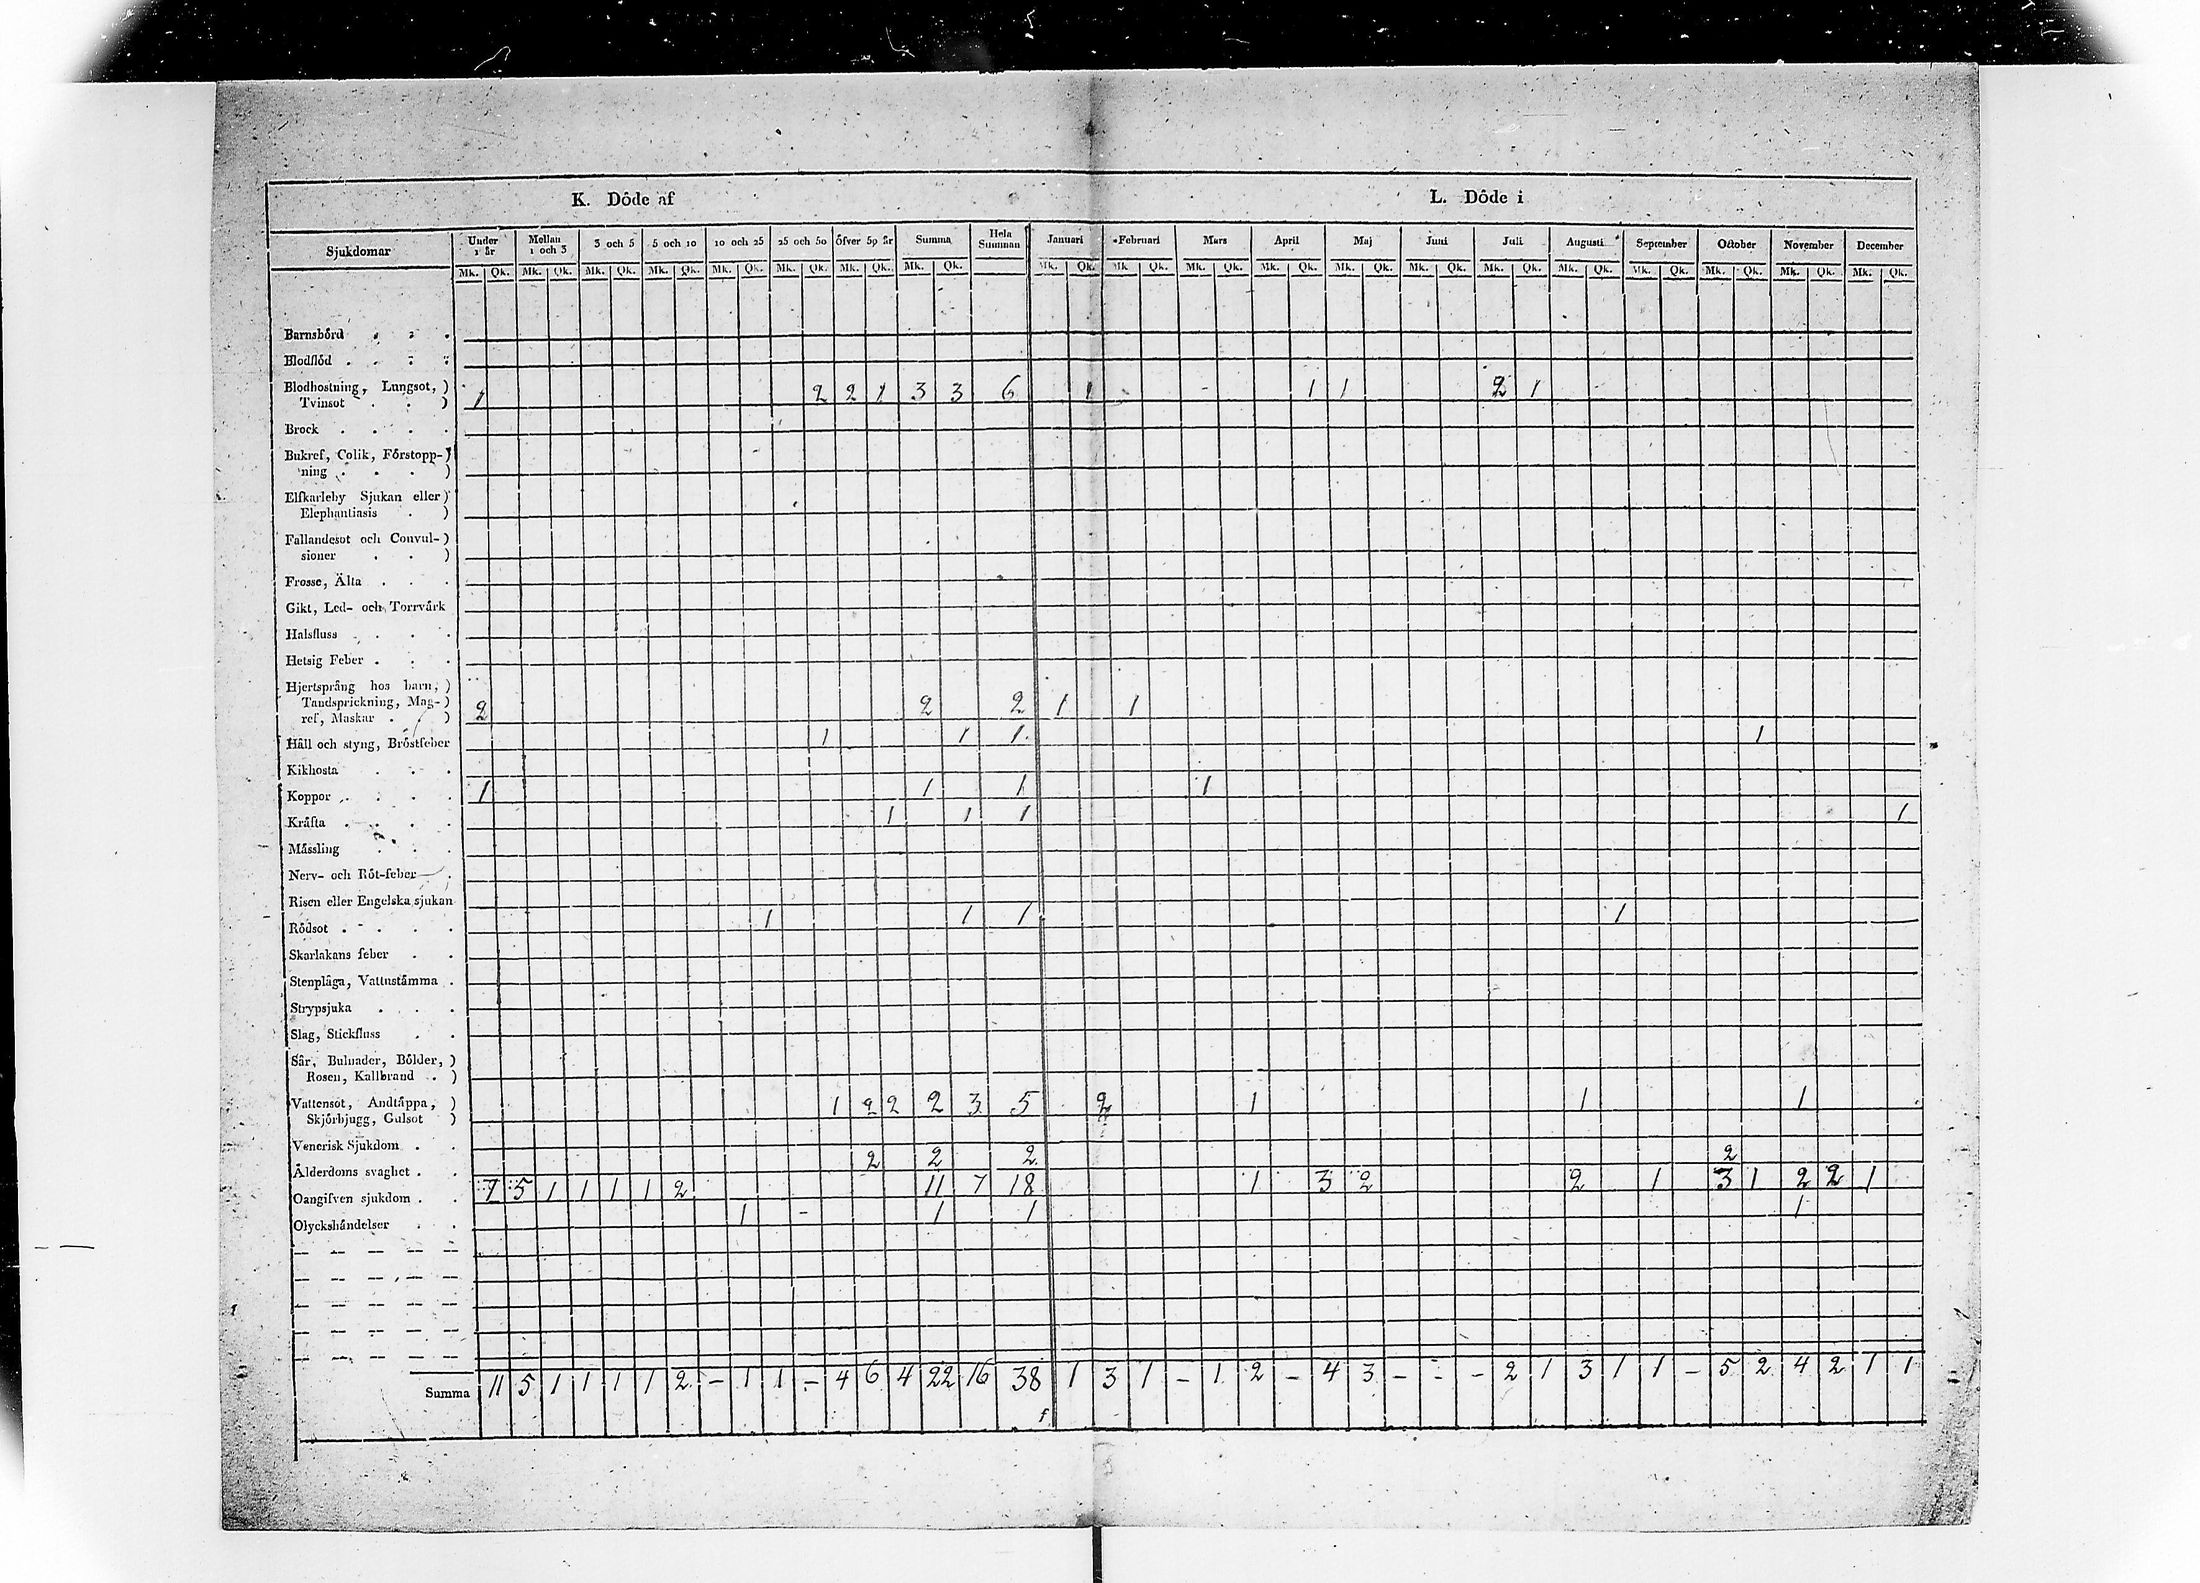 K. Döde af L. Döde i
Sjukdomar Under 1 år Mellan 1 och 3 3 och 5 5 och 10 10 och 25 25 och 50 Öfver 50 år Summa Hela Summan Januari Februari Mars April Maj Juni Juli Augusti September October November December
Mk. Qk. Mk. Qk. Mk. Qk. Mk. Qk. Mk. Qk. Mk. Qk. Mk. Qk. Mk. Qk. Mk. Qk. Mk. Qk. Mk. Qk. Mk. Qk. Mk. Qk. Mk. Qk. Mk. Qk. Mk. Qk. Mk. Qk. Mk. Qk. Mk. Qk. Mk. Qk.
Barnsbörd
Blodflöd
Blodhostning, Lungsot, )
Tvinsot ) 1 2 2 1 3 3 6 1 1 1 2 1
Brock
Bukref, Colik, Förstopp- )
ning )
Elfkarleby Sjukan eller )
Elephantiasis )
Fallandesot och Convul- )
sioner )
Frosse, Älta
Gikt, Led- och Torrvärk
Halsfluss
Hetsig Feber
Hjertsprång hos barn, )
Tandsprickning, Mag- )
ref, Maskar ) 2 2 2 1 1
Håll och styng, Bröstfeber 1 1 1 1
Kikhosta
Koppor 1 1 1 1
Kräfta 1 1 1 1
Mässling
Nerv- och Röt-feber
Risen eller Engelska sjukan
Rödsot 1 1 1 1
Skarlakans feber
Stenplåga, Vattnstämma
Strypsjuka
Slag, Stickfluss
Sår, Bulnader, Bölder, )
Rosen, Kallbrand )
Vattensot, Andtäppa, )
Skjörbjugg, Gulsot ) 1 2 2 2 3 5 2 1 1 1
Venerisk Sjukdom
Ålderdoms svaghet 2 2 2 2
Oangifven sjukdom 7 5 1 1 1 1 2 11 7 18 1 3 2 2 1 3 1 2 2 1
Olyckshändelser 1 - 1 1 1
Summa 11 5 1 1 1 1 2 - 1 1 - 4 6 4 22 16 38 1 3 1 - 1 2 - 4 3 - - - 2 1 3 1 1 - 5 2 4 2 1 1